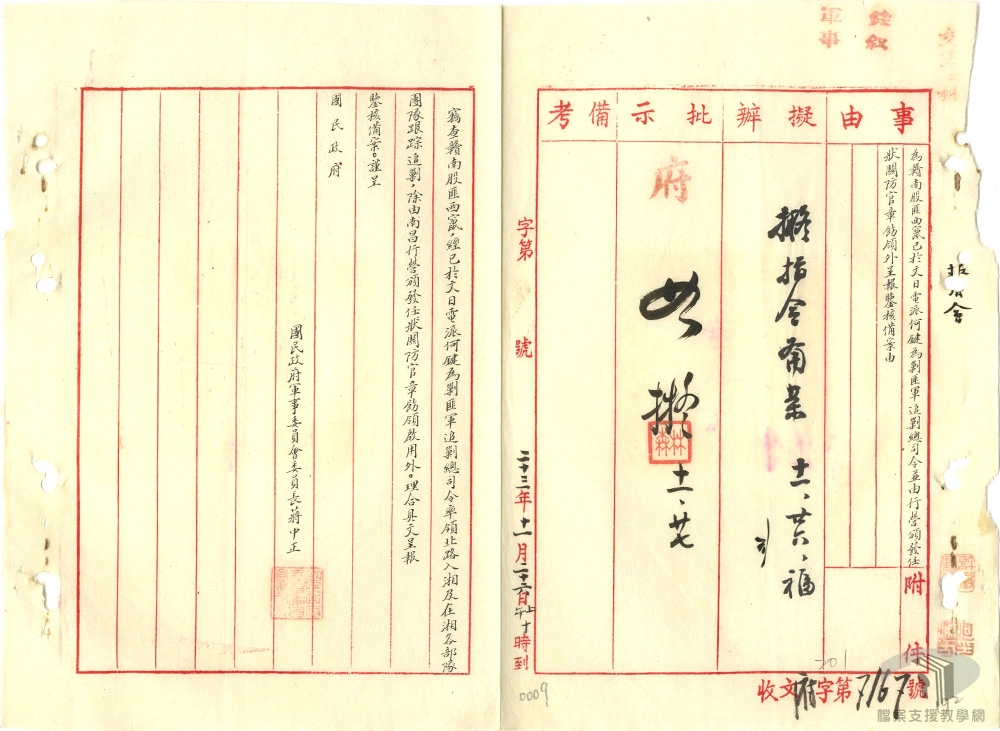 銓敘
軍事
事由
擬辦
批示
備考
為贛南股匪西竄已於文日電派何鍵為剿匪軍追剿總司令並由行營頒發任
狀關防官章飭領外呈報鑒核備案由
附件
擬指令備案 十一、廿六、福
府
如擬 十一、廿七
林森
字第 號
二十三年十一月二十六日上午十時到
收文府字第7167號
201
0009
竊查贛南股匪西竄,經已於文日電派何鍵為剿匪軍追剿總司令率領北路入湘及在湘各部隊
團隊跟踪追剿,除由南昌行營頒發任狀關防官章飭領啟用外。理合具文呈報
鑒核備案。謹呈
國民政府
國民政府軍事委員會委員長蔣中正
檔案支援教學網